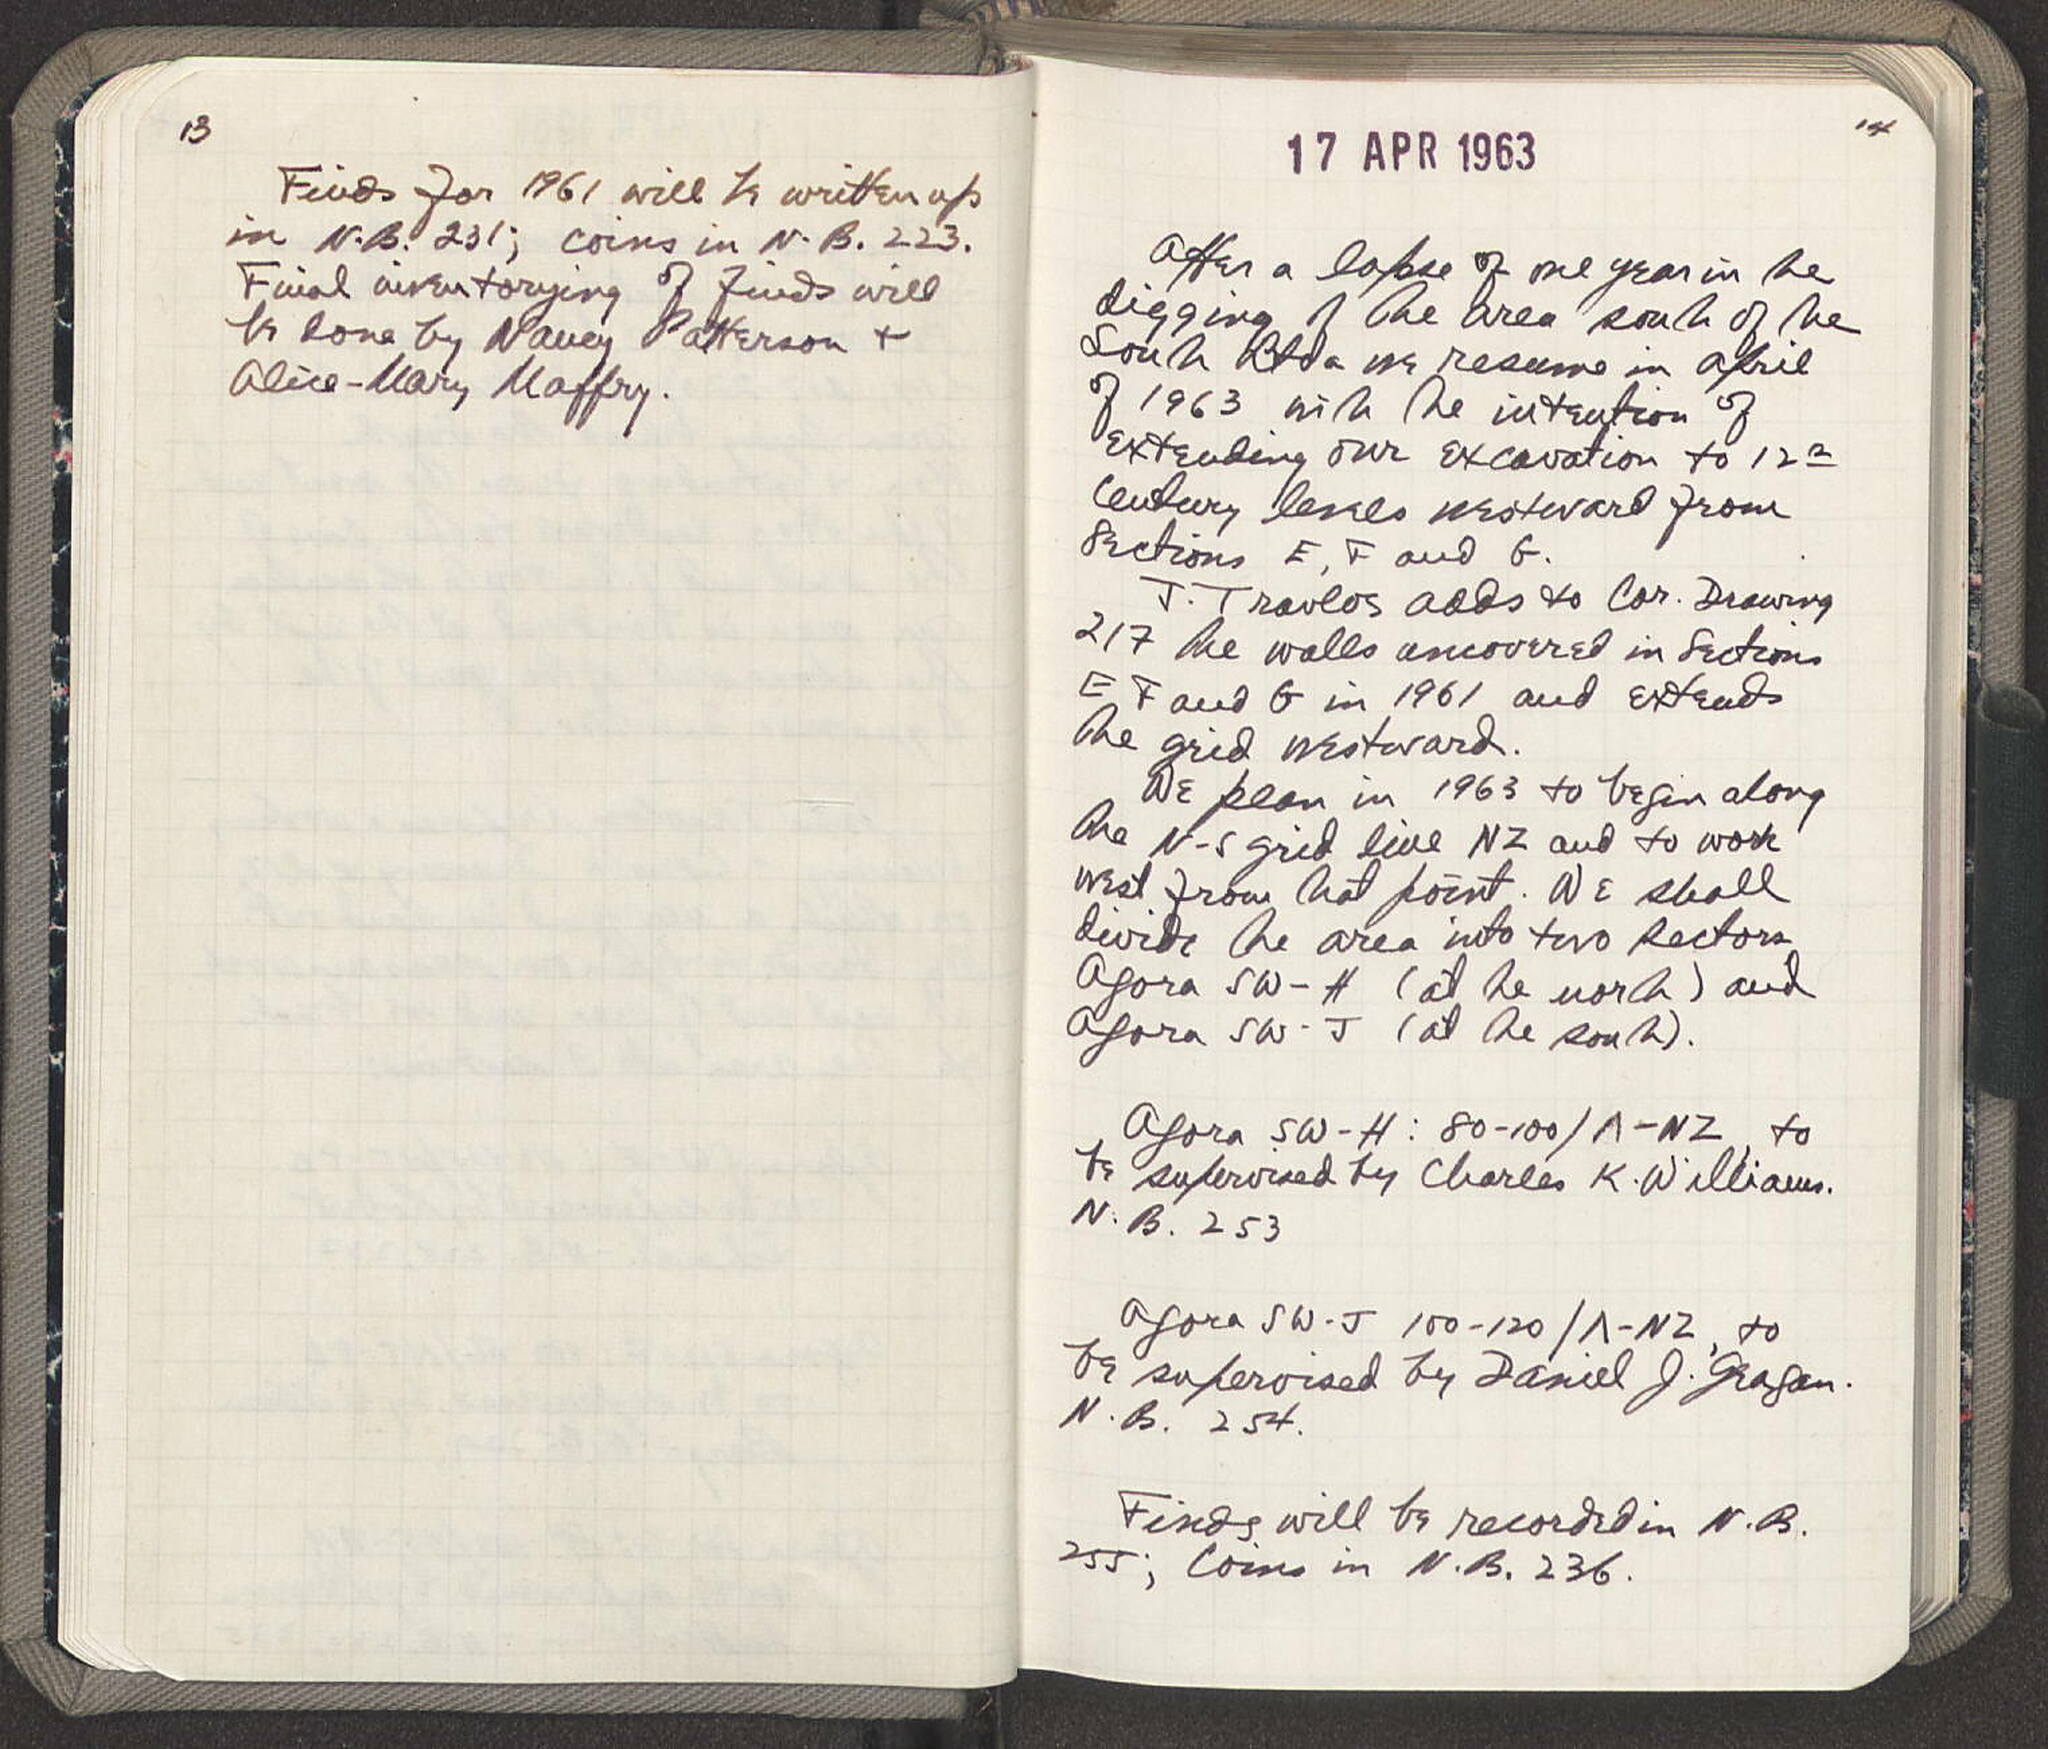 13
Finds for 1961 will be written up
in N.B. 231; coins in N.B. 223.
Final inventorying of finds will
be done by Nancy Patterson +
Alice-Mary Maffry.
14
17 APR 1963
After a lapse of one year in the
digging of the area south of the
South Stoa we resume in April
of 1963 with the intention of
extending our excavation to 12th
century levels westward from
Sections E, F and G.
J. Travlos adds to Cor. Drawing
217 the walls uncovered in Sections
E F and G in 1961 and extends
the grid westward.
We plan in 1963 to begin along
the N-S grid line NZ and to work
west from that point. We shall
divide the area into two sectors
Agora SW-H (at the north) and
Agora SW-J (at the south).
Agora SW-H: 80-100/Λ-NZ, to
be supervised by Charles K. Williams.
N.B. 253
Agora SW-J 100-120/Λ-NZ, to
be supervised by Daniel J. Geagan.
N.B. 254.
Finds will be recorded in N.B.
255; Coins in N.B. 236.